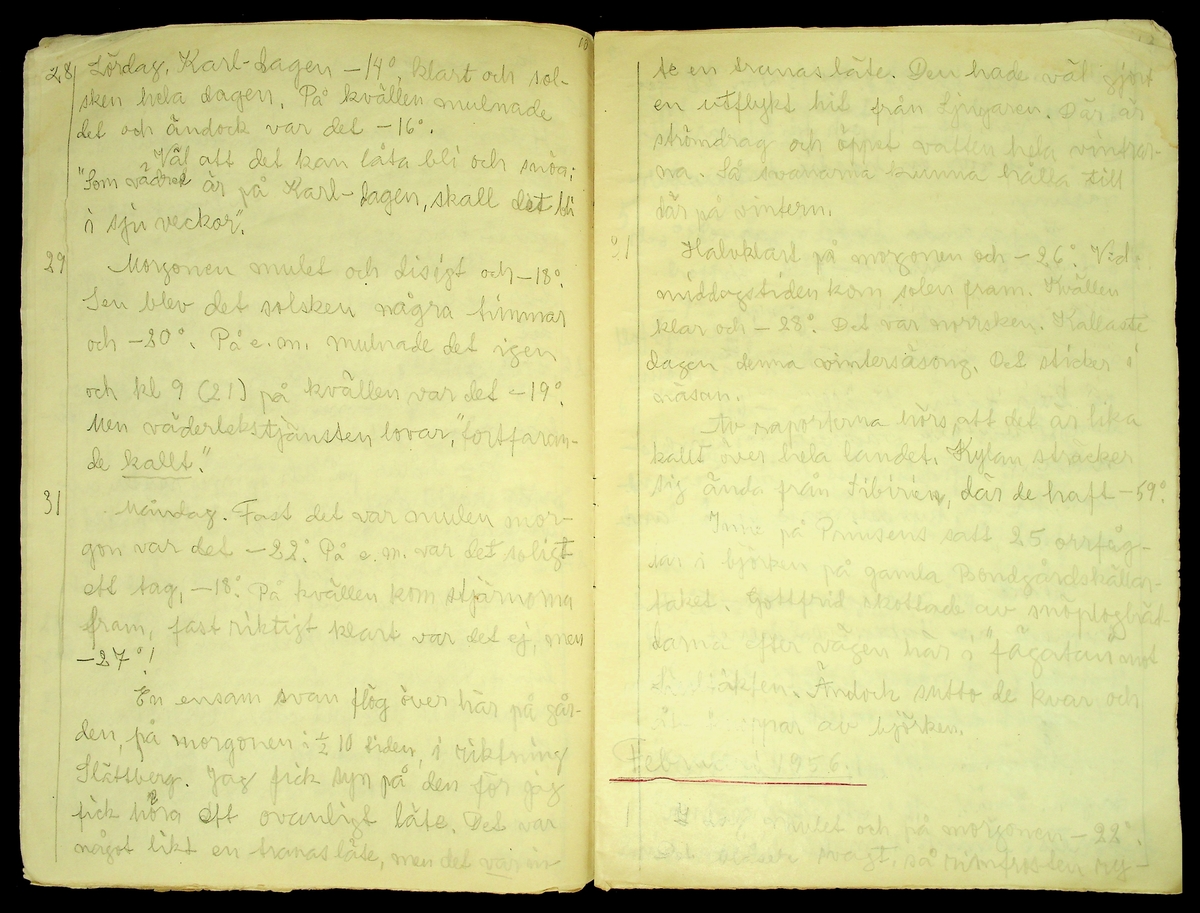 10
28 Lördag. Karl-dagen -14°, klart och sol-
sken hela dagen. På kvällen mulnade
det och ändock var det -16°.
Väl att det kan låta bli och snöa;
"Som vädret är på Karl-dagen, skall det bli
i sju veckor".
29 Morgonen mulet och disigt och -18°.
Sen blev det solsken några timmar
och -20°. På e.m. mulnade det igen
och kl 9 (21) på kvällen var det -19°.
Men väderlekstjänsten lovar, "fortfaran-
de kallt."
31 Måndag. Fast det var mulen mor-
gon var det -22°. På e.m. var det soligt
ett tag, -18°. På kvällen kom stjärnorna
fram, fast riktigt klart var det ej, men
-27°!
En ensam svan flög över här på går-
den, på morgonen i ½ 10 tiden, i riktning
Slättberg. Jag fick syn på den för jag
fick höra ett ovanligt läte. Det var
något likt en tranas läte, men det var in-
te en tranas läte. Den hade väl gjort
en utflykt hit från Ljugaren. Där är
strömdrag och öppet vatten hela vintrar-
na. Så svanarna kunna hålla till
där på vintern.
31 Halvklart på morgonen och -26°. Vid
middagstiden kom solen fram. Kvällen
klar och -28°. Det var norrsken. Kallaste
dagen denna vintersäsong. Det sticker i
näsan.
Av raporterna hörs, att det är lika
kallt över hela landet. Kylan sträcker
sig ända från Sibirien, där de haft -59°.
Inne på Prinsens satt 25 orrfåg-
lar i björken på gamla Bondgårdskällar-
taket. Gottfrid skottade av snöplogkan-
darna efter vägen här i "fägatan" mot
. Ändock sutto de kvar och
av björken.
Februari 1956.
1 mulet och på morgonen -22°.
svagt, så rimfrosten ry-